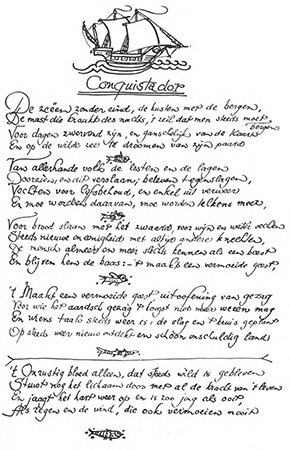 Conquistador
De zeeën zonder eind, de kusten met de bergen,
De mast die kraakt des nachts, 't zeil dat men steeds moet bergen
Voor dagen zwervend zijn, en ganschelijk van de kaart
En op de wilde zee te droomen van zijn paard
Van allerhande volk de lasten en de lagen
Doorzien, en dit verslaan; beleven tegenslagen,
Vechten voor lijfsbehoud, en enkel uit verweer
En moe worden daarvan, moe worden telkens meer,
Voor brood slaan met het zwaard, voor wijn en water vechten
Steeds nieuwe oneenigheid met altijd andere knechten,
De mensch almeer en meer slechts kennen als een beest
En blijven hem de baas: - 't maakt een vermoeide geest,
't Maakt een vermoeide geest uitoefening van gezag
Voor wie het aardsch gezag 't loogst niet meer weêen mag
En wiens taak steeds weer is: de vlag en 't kruis geplant
Op steeds weer nieuw ontdekt en schoon onschuldig land
't Onrustig bloed alleen, dat steeds wild is gebleven
Stuwt nog het lichaam door met al de kracht van 't leven
En jaagt het hart weer op en is zoo jong als ooit,
Als regen en de wind, die ook vermoeien nooit